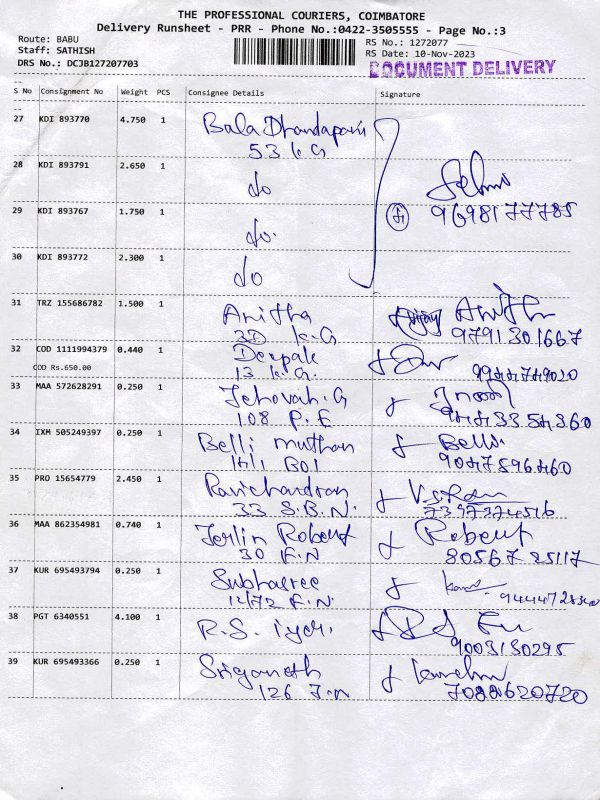 THE PROFESSIONAL COURIERS, COIMBATORE
Delivery Runsheet - PRR - Phone No.:0422-3505555 - Page No.:3
Route: BABU
Staff: SATHISH
DRS No.: DCJB127207703
RS No.: 1272077
RS Date: 10-Nov-2023
DOCUMENT DELIVERY
S No Consignment No Weight PCS Consignee Details Signature
27 KDI 893770 4.750 1 Bala Dhandapani
53 K.G
28 KDI 893791 2.650 1 do
9698177785
29 KDI 893767 1.750 1 do.
30 KDI 893772 2.300 1 do
31 TRZ 155686782 1.500 1 Anitha
3D K.G 9791301667
32 COD 1111994379 0.440 1 Deepak
COD Rs.650.00 13 K.G.
33 MAA 572628291 0.250 1 Jehovah.G
108 P.E
34 IXM 505249397 0.250 1 Belli muthan Belli.
35 PRO 15654779 2.450 1 Ravichandran
33 S.B.N.
36 MAA 862354981 0.740 1 Jerlin Robert Robert
30 F.N 80567 25117
37 KUR 695493794 0.250 1 Subhasree
12/72 F.N.
38 PGT 6340551 4.100 1 R.S. iyer.
9003130295
39 KUR 695493366 0.250 1 Sriganesh
126 F.N